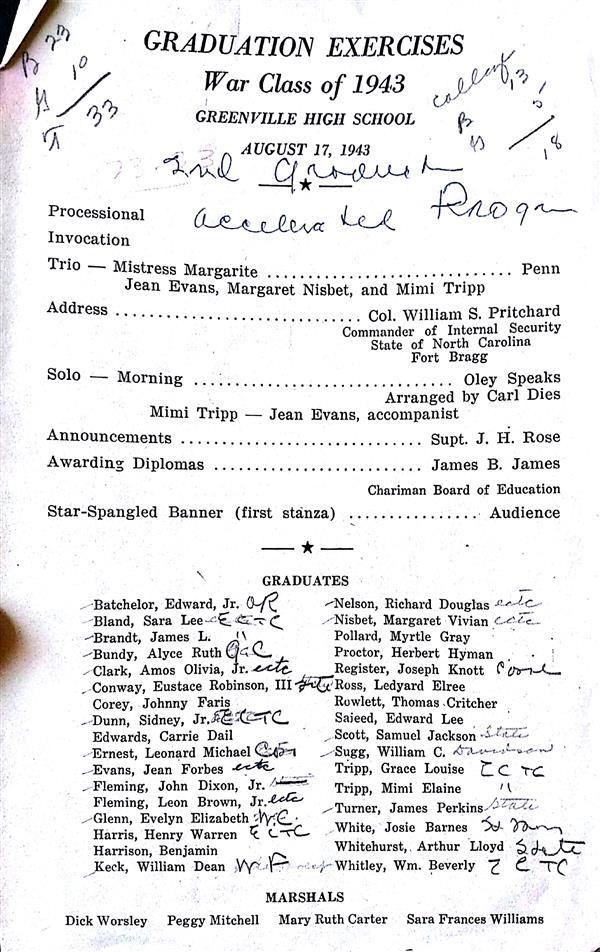 GRADUATION EXERCISES
War Class of 1943
GREENVILLE HIGH SCHOOL
AUGUST 17, 1943
B 23
G 10
T 33
B 5
18
2nd Graduat
accelerated Progr
Processional
Invocation
Trio — Mistress Margarite .............................. Penn
Jean Evans, Margaret Nisbet, and Mimi Tripp
Address .............................. Col. William S. Pritchard
Commander of Internal Security
State of North Carolina
Fort Bragg
Solo — Morning .............................. Oley Speaks
Arranged by Carl Dies
Mimi Tripp — Jean Evans, accompanist
Announcements .............................. Supt. J. H. Rose
Awarding Diplomas .......................... James B. James
Chariman Board of Education
Star-Spangled Banner (first stanza) ................ Audience
GRADUATES
Batchelor, Edward, Jr.
Bland, Sara Lee ECTC
Brandt, James L. "
Bundy, Alyce Ruth
Clark, Amos Olivia, Jr. ectc
Conway, Eustace Robinson, III
Corey, Johnny Faris
Dunn, Sidney, Jr. ECTC
Edwards, Carrie Dail
Ernest, Leonard Michael
Evans, Jean Forbes ectc
Fleming, John Dixon, Jr.
Fleming, Leon Brown, Jr. ectc
Glenn, Evelyn Elizabeth W.C.
Harris, Henry Warren ECTC
Harrison, Benjamin
Keck, William Dean
Nelson, Richard Douglas ectc
Nisbet, Margaret Vivian ectc
Pollard, Myrtle Gray
Proctor, Herbert Hyman
Register, Joseph Knott
Ross, Ledyard Elree
Rowlett, Thomas Critcher
Saieed, Edward Lee
Scott, Samuel Jackson State
Sugg, William C. Davidson
Tripp, Grace Louise ECTC
Tripp, Mimi Elaine "
Turner, James Perkins State
White, Josie Barnes
Whitehurst, Arthur Lloyd State
Whitley, Wm. Beverly ECTC
MARSHALS
Dick Worsley Peggy Mitchell Mary Ruth Carter Sara Frances Williams